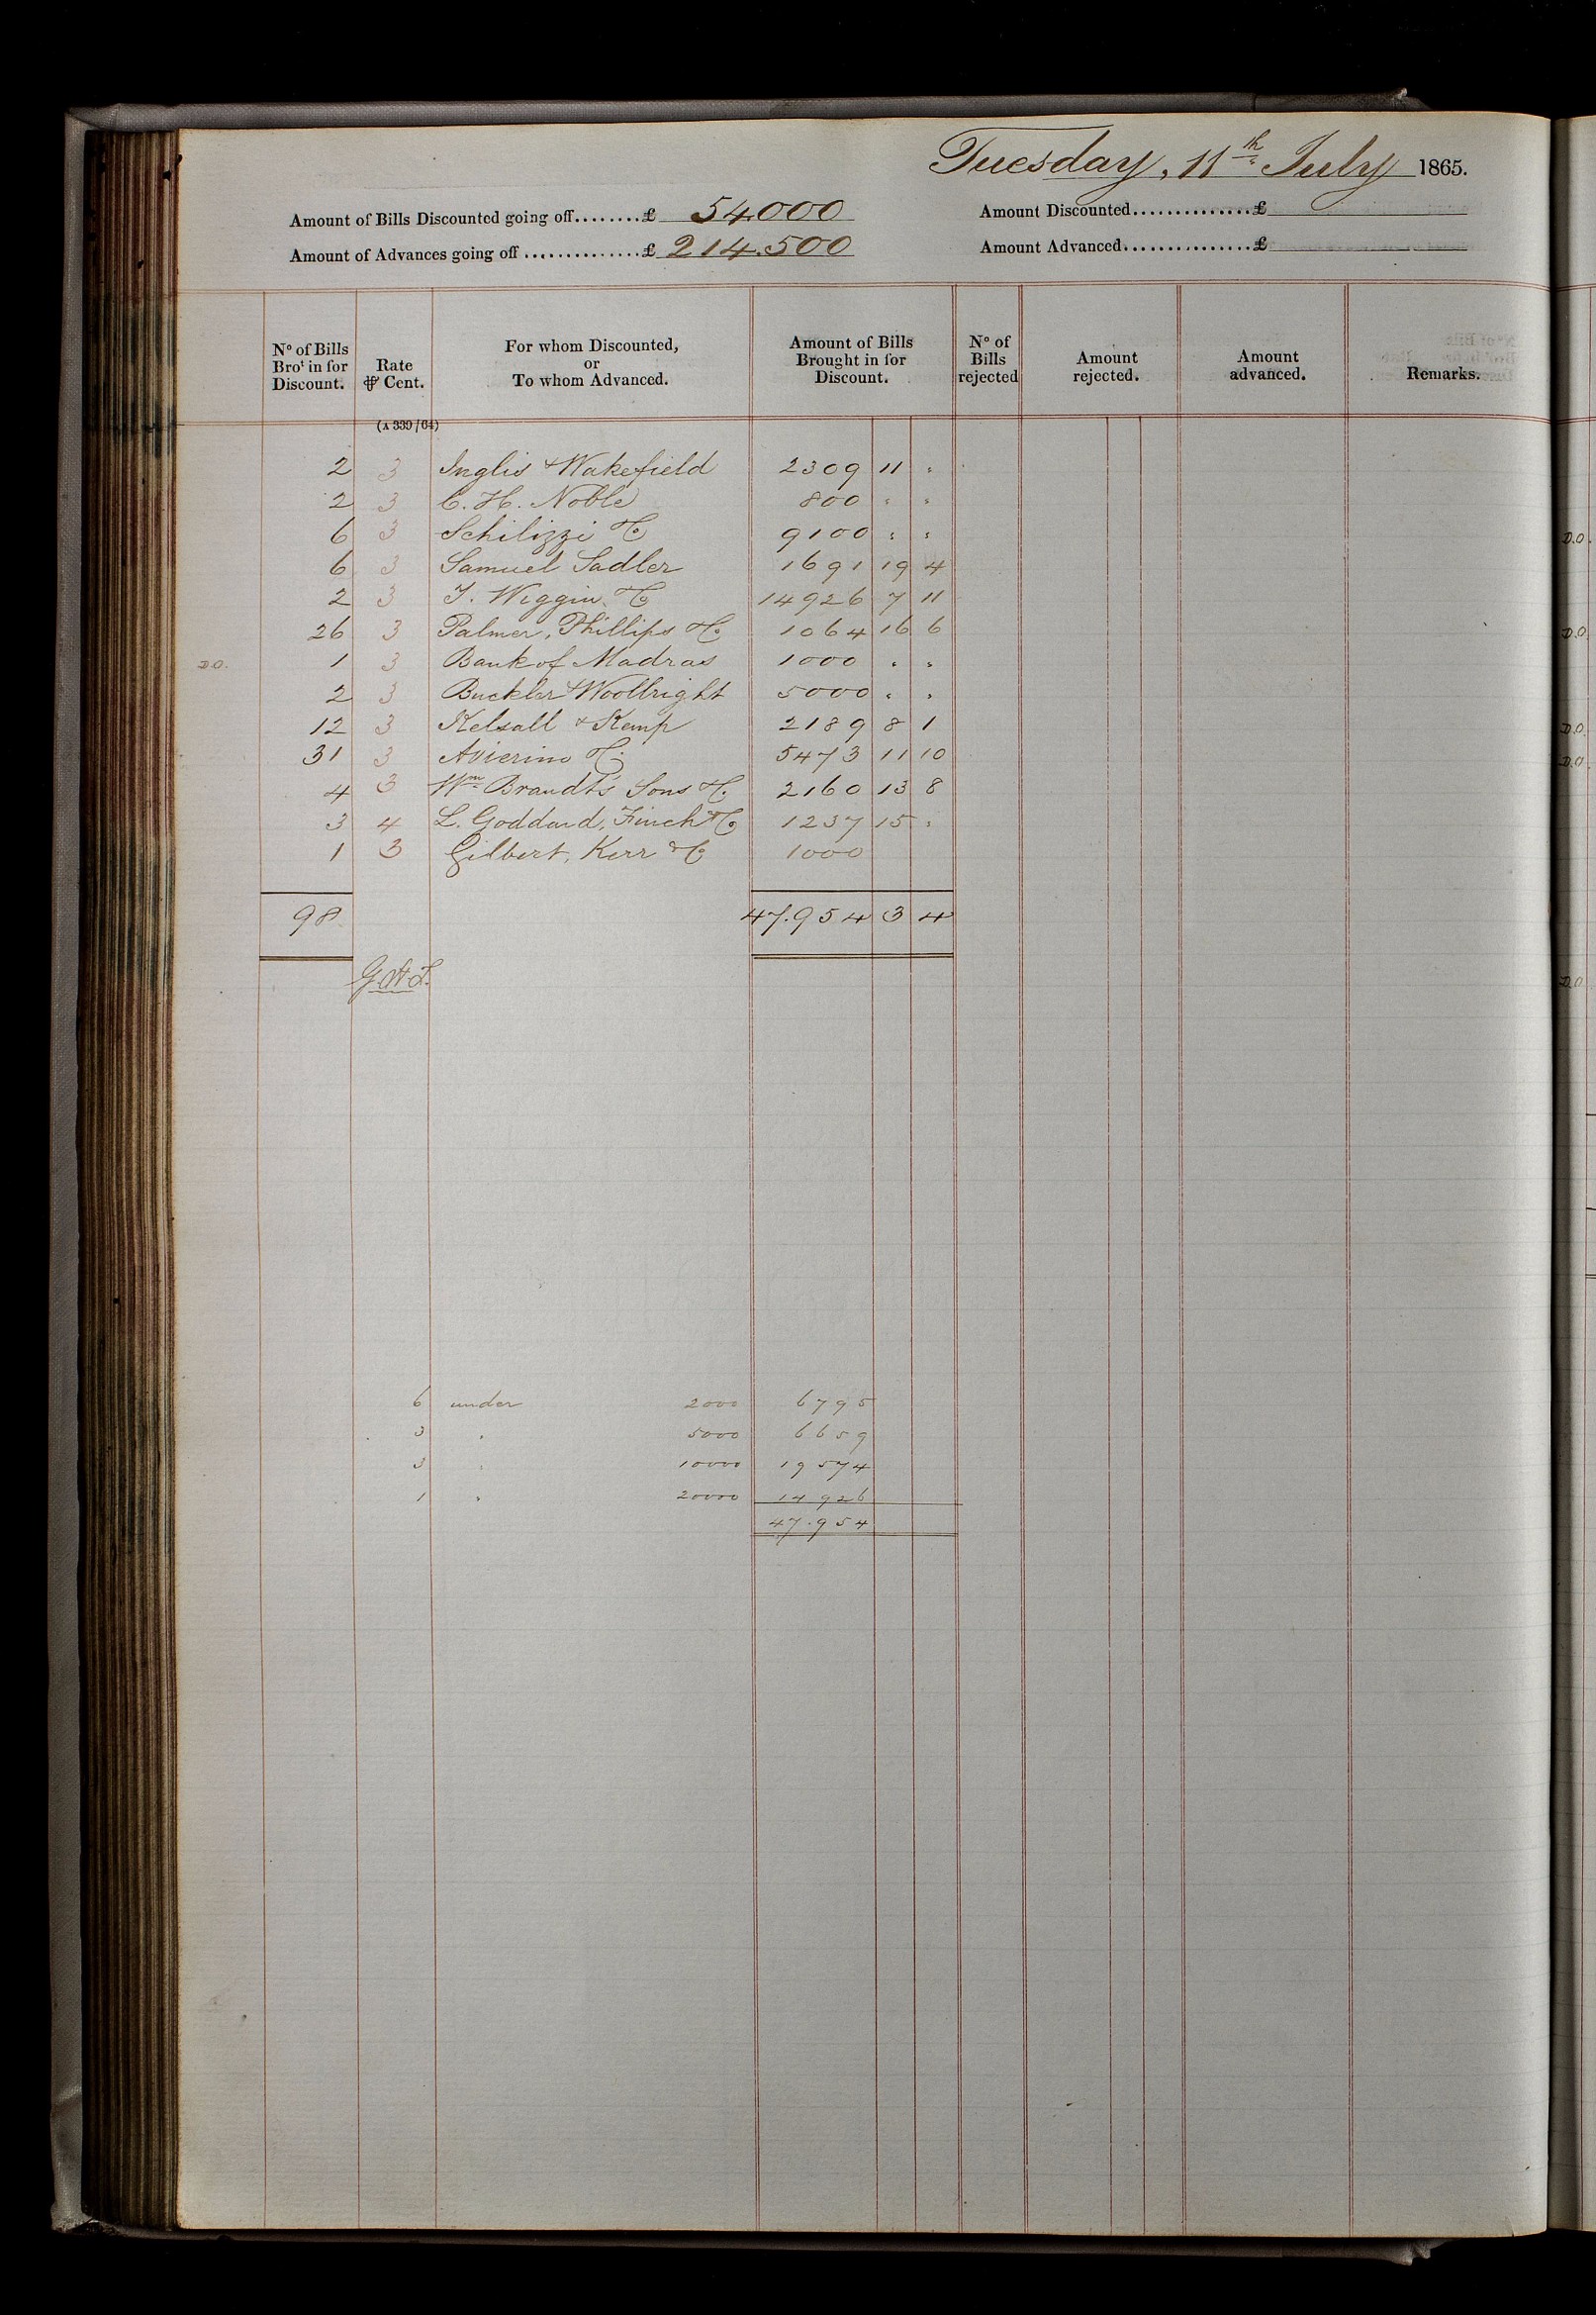 Tuesday, 11th July 1865.
Amount of Bills Discounted going off........£ 54000 Amount Discounted..............£
Amount of Advances going off ..............£ 214.500 Amount Advanced...............£
No of Bills Brot in for Discount. Rate ⅌ Cent. For whom Discounted, or To whom Advanced. Amount of Bills Brought in for Discount. No of Bills rejected Amount rejected. Amount advanced. Remarks.
(A 339/64)
2 3 Inglis & Wakefield 2309 11 "
2 3 C. H. Noble 800 " "
6 3 Schilizzi & Co 9100 " "
6 3 Samuel Sadler 1691 19 4
2 3 T. Wiggin & Co 14926 7 11
26 3 Palmer, Phillips & Co 1064 16 6
D.O. 1 3 Bank of Madras 1000 " "
2 3 Buckler & Woollright 5000 " "
12 3 Kelsall & Kemp 2189 8 1
31 3 Avierino & Co 5473 11 10
4 3 Wm Brandt's Sons & Co 2160 13 8
3 4 L. Goddard, Finch & Co 1237 15 "
1 3 Gilbert, Kerr & Co 1000
98 47.954 3 4
6 under 2000 6795
3 " 5000 6659
3 " 10000 19574
1 " 20000 14926
47.954
D.O.
D.O.
D.O.
D.O.
D.O.